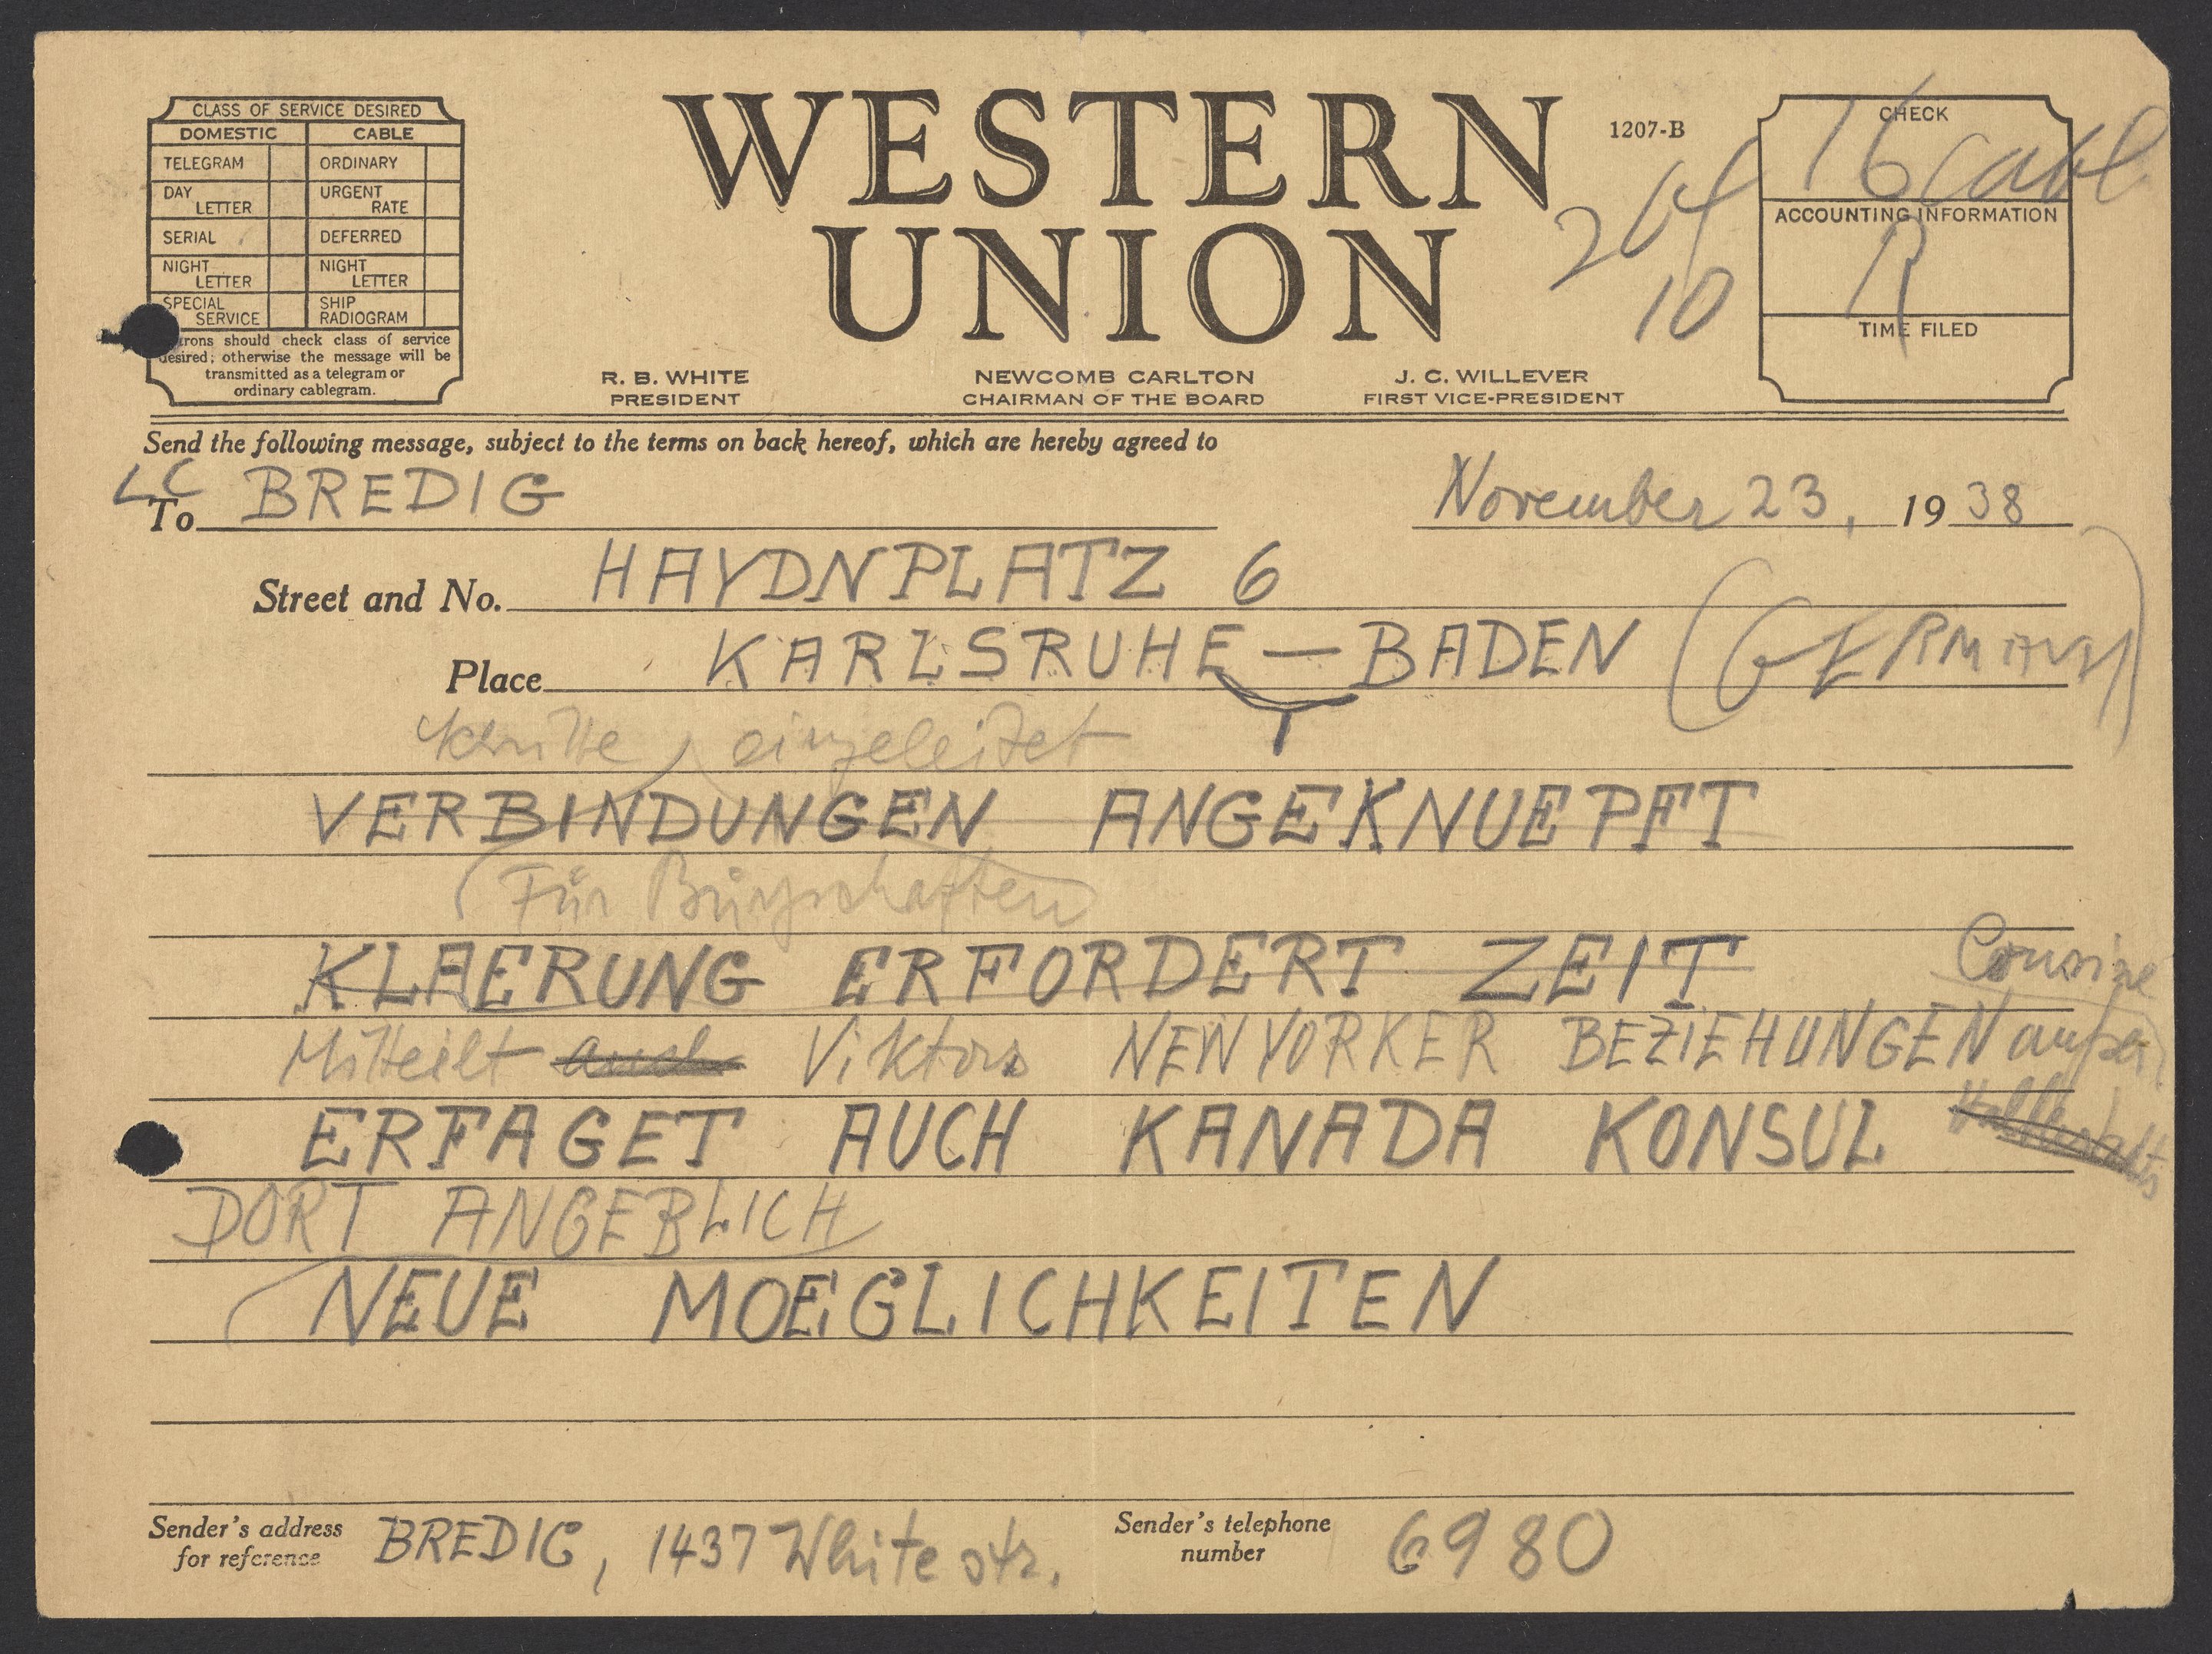 CLASS OF SERVICE DESIRED
DOMESTIC CABLE
TELEGRAM ORDINARY
DAY LETTER URGENT RATE
SERIAL DEFERRED
NIGHT LETTER NIGHT LETTER
SPECIAL SERVICE SHIP RADIOGRAM
trons should check class of service
desired; otherwise the message will be
transmitted as a telegram or
ordinary cablegram.
WESTERN
UNION
1207-B
10
R. B. WHITE
PRESIDENT
NEWCOMB CARLTON
CHAIRMAN OF THE BOARD
J. C. WILLEVER
FIRST VICE-PRESIDENT
CHECK
16 Cabl
ACCOUNTING INFORMATION
R
TIME FILED
Send the following message, subject to the terms on back hereof, which are hereby agreed to
LC
To BREDIG November 23, 1938
Street and No. HAYDNPLATZ 6
Place KARLSRUHE — BADEN (GERMANY)
Schritte eingeleitet
VERBINDUNGEN ANGEKNUEPFT
Für Bürgschaften
KLAERUNG ERFORDERT ZEIT
Cousine
Mitteilt auch Viktors NEWYORKER BEZIEHUNGEN außer
ERFAGET AUCH KANADA KONSUL
DORT ANGEBLICH
NEUE MOEGLICHKEITEN
Sender's address
for reference
BREDIG, 1437 White str.
Sender's telephone
number
6980